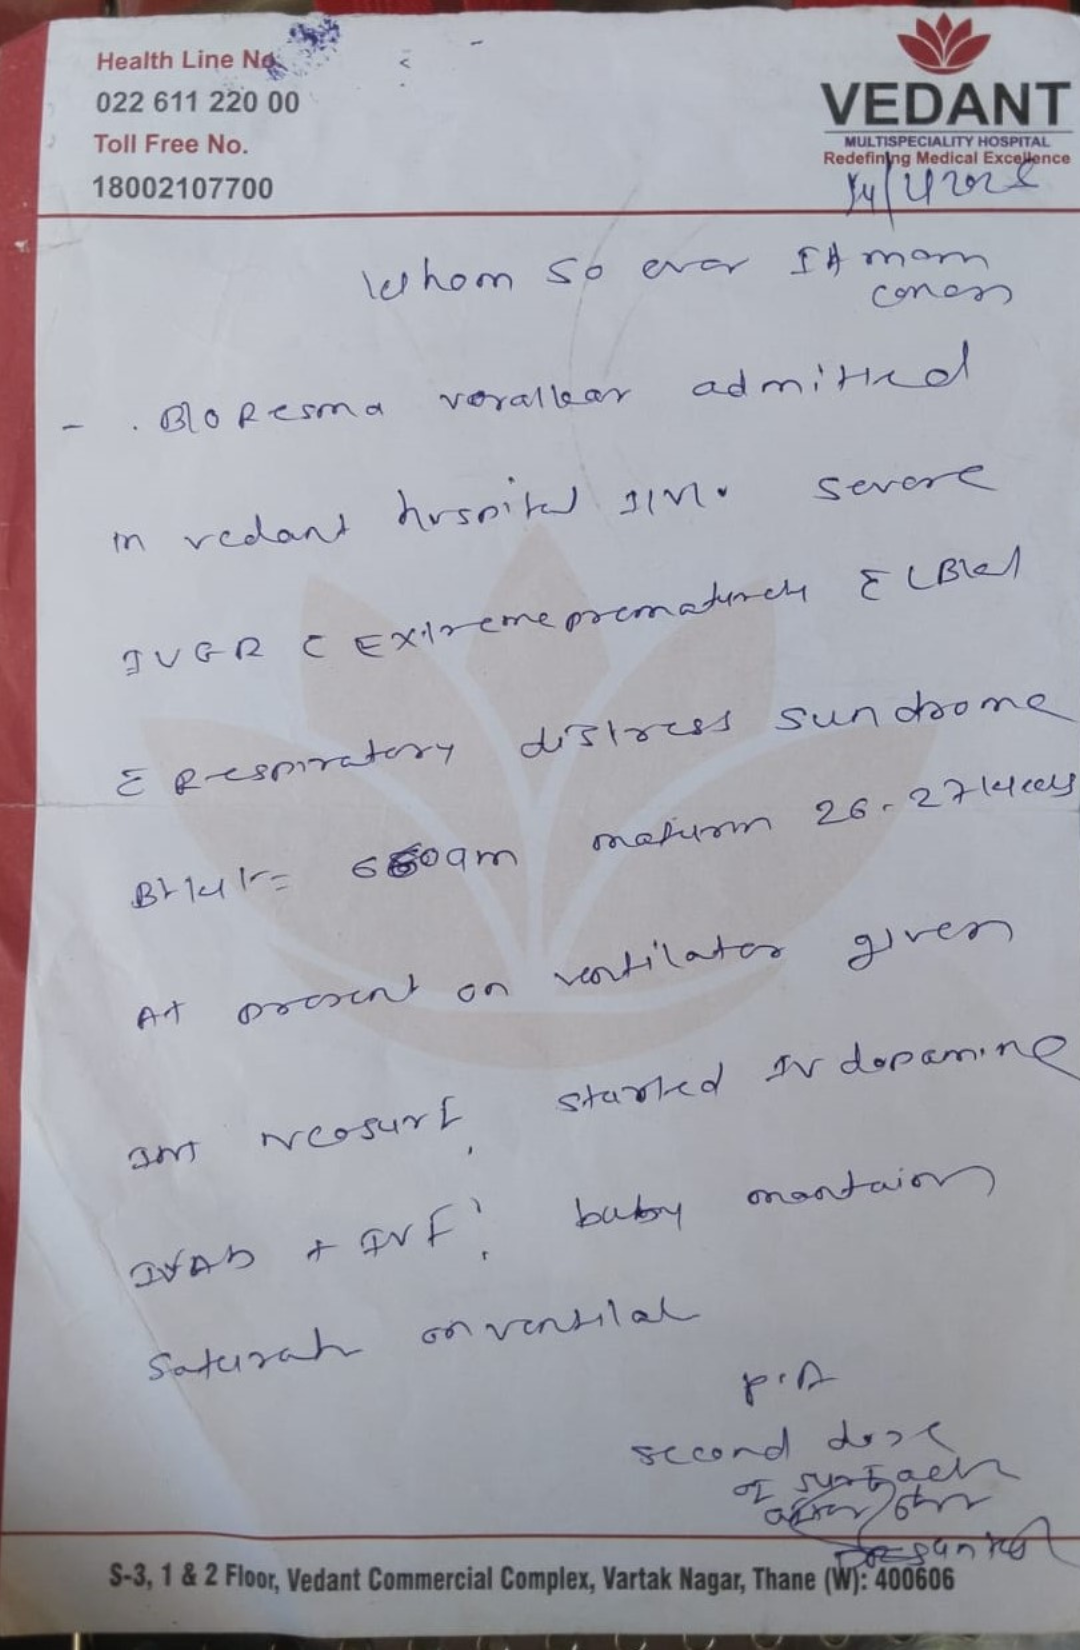 Health Line No.
022 611 220 00
Toll Free No.
18002107700
VEDANT
MULTISPECIALITY HOSPITAL
Redefining Medical Excellence
Whom so ever It mom
concers
B/o Resma admitted
in vedant hospital severe
IUGR c Extreme prematurety ELBW
c Respiratory distress sundrome
Bt wt = gm 26-27 weeks
At present on ventilator given
Neosurf, started IV dopamine
IVAb + IVF, baby
on ventilat
second dose
of
after
S-3, 1 & 2 Floor, Vedant Commercial Complex, Vartak Nagar, Thane (W): 400606